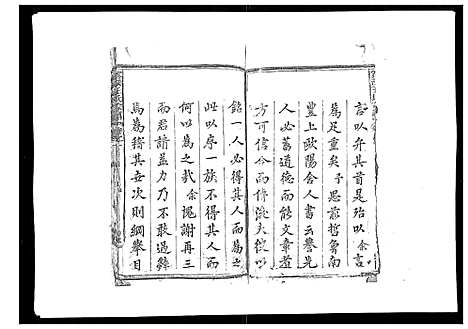 言以弁其首是殆以余言
為足重矣予思前哲曾南
豐上歐陽舍人書云譽先
人必蓄道德而能文章者
方可信今而傳後夫從以
銘一人必得其人而為之
此以序一族不得其人而
何以為之哉余愧謝再三
而君請益力乃不敢過辭
為為緒其世次則綱舉目